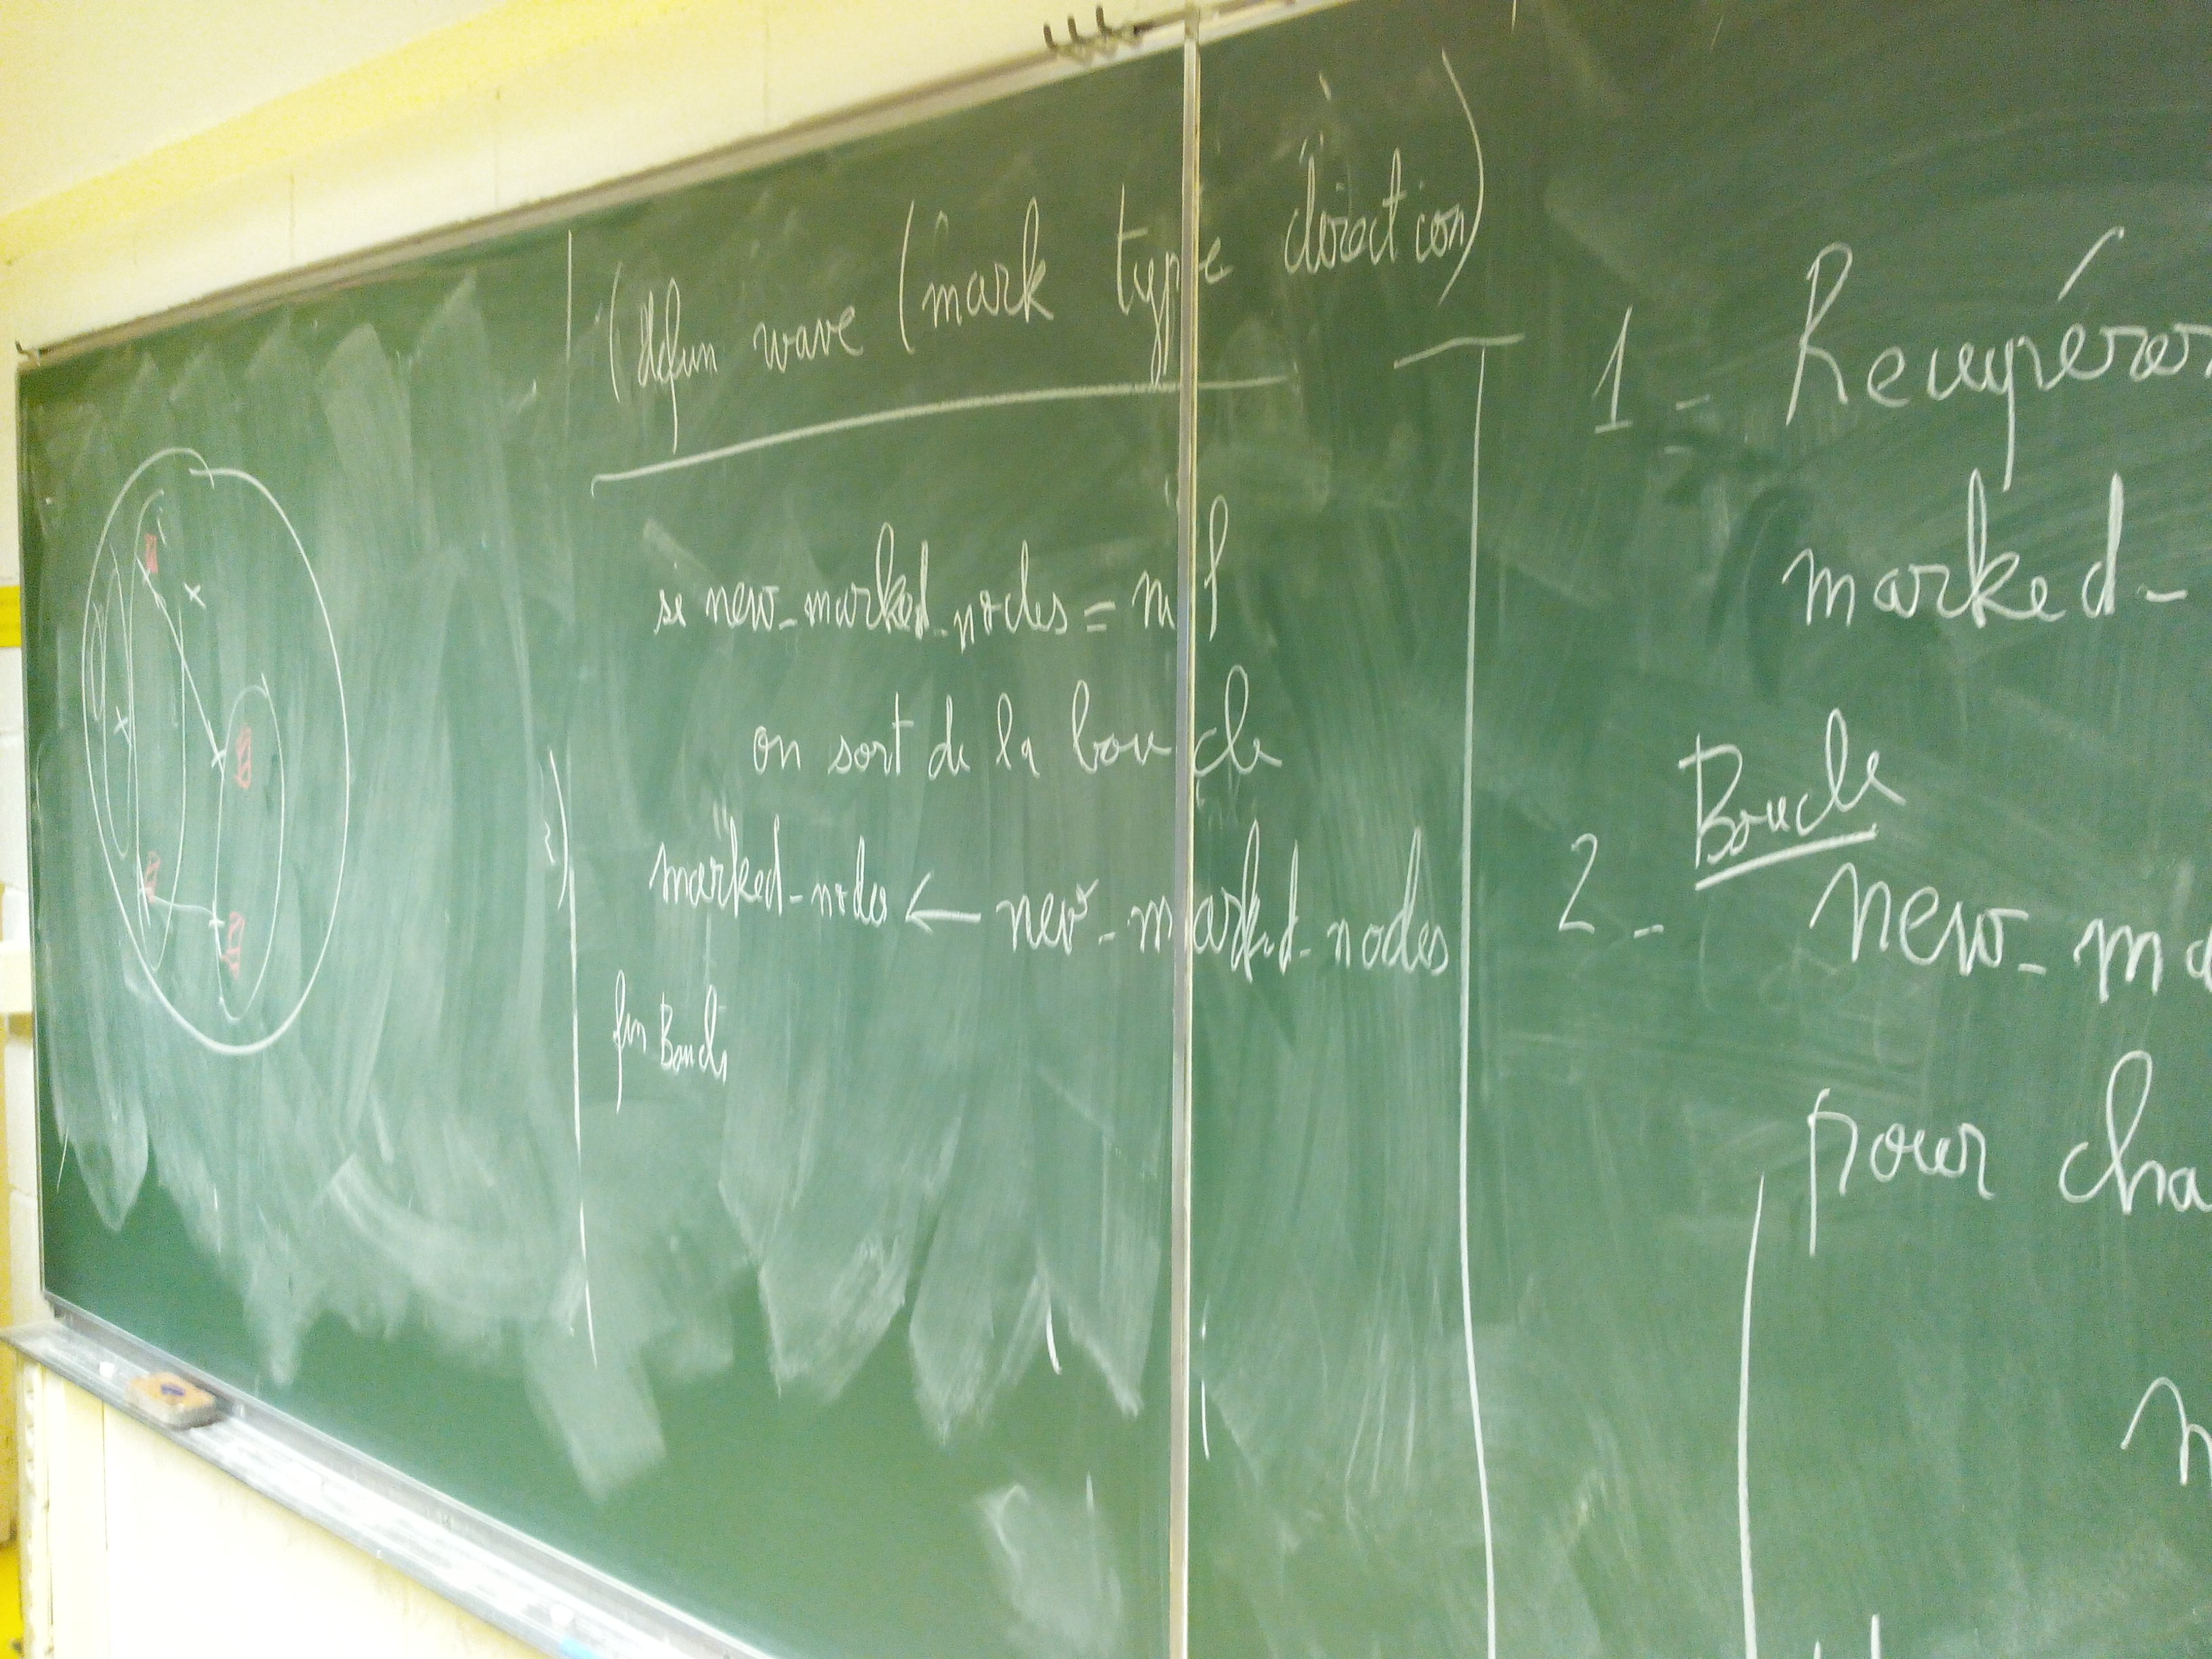 (defun wave (mark type direction)
si new_marked_nodes = nil
on sort de la boucle
marked_nodes ← new_marked_nodes
fin Boucle
1 - Recupérer
marked-
Boucle
2 - new_ma
pour cha